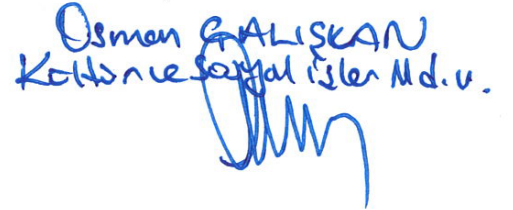 Osman ÇALIŞKAN
Kültür ve Sosyal işler Md. v.